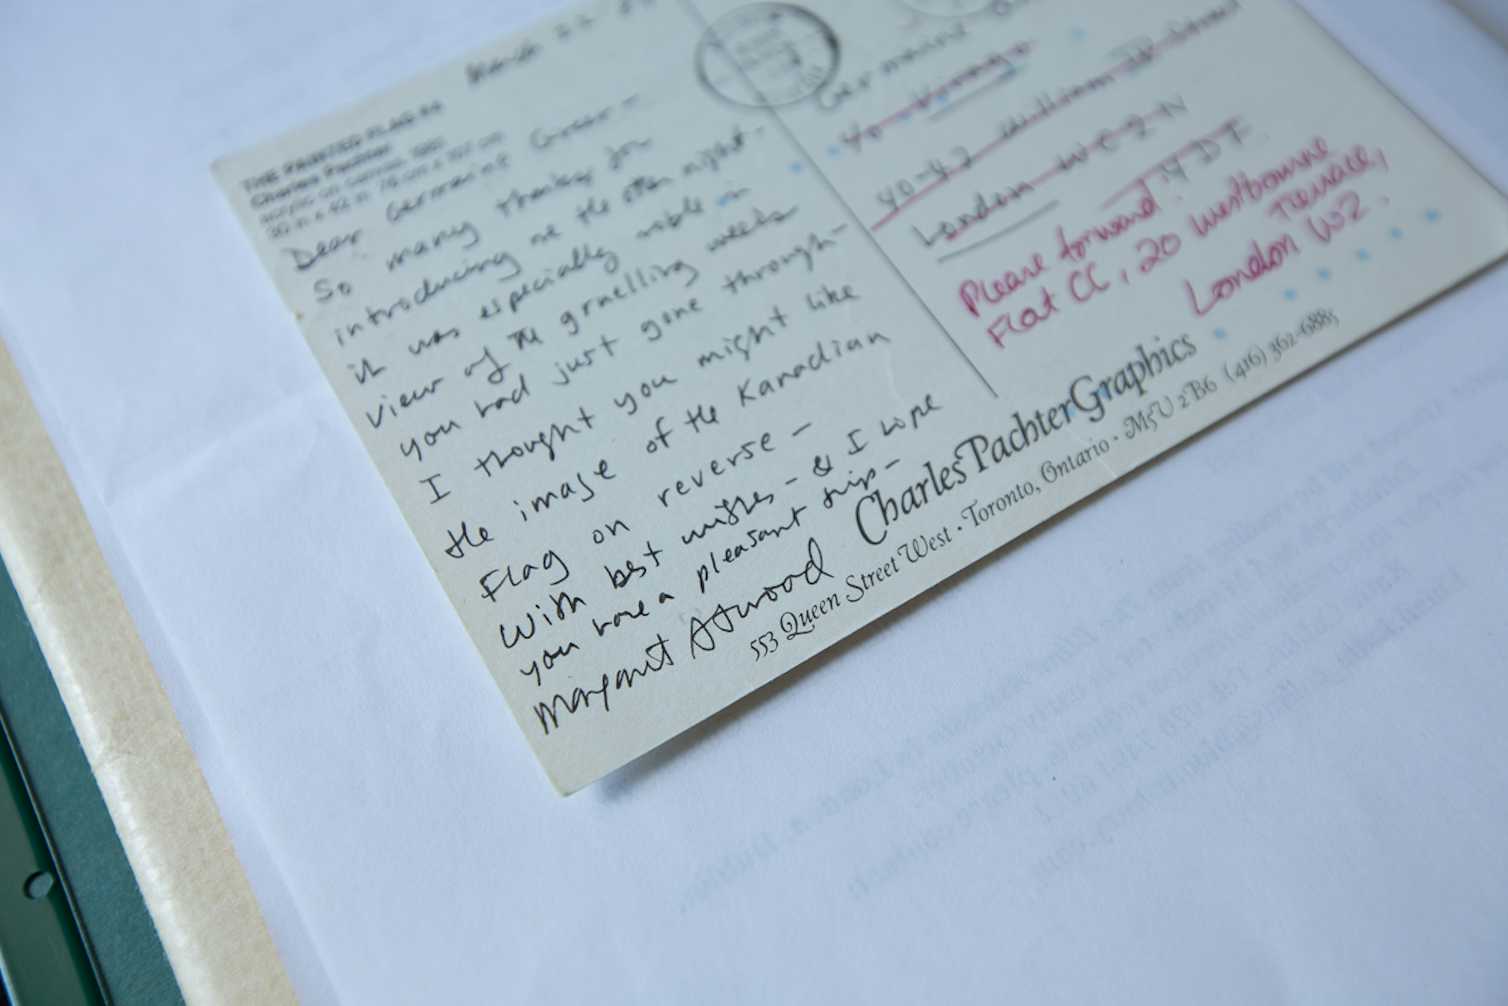 March 22
THE PAINTED FLAG
Charles Pachter
acrylic on canvas, 1981
Dear Germaine Greer –
So many thanks for
introducing me the other night.
it was especially noble in
view of the gruelling weeks
you had just gone through –
I thought you might like
the image of the Kanadian
Flag on reverse –
With best wishes – & I hope
you have a pleasant trip –
Margaret Atwood
Germaine
40 Virago
40-42 William IV Street
London WC2N 4DF
Please forward:
Flat CC, 20 Westbourne
Terrace,
London W2.
CharlesPachterGraphics
553 Queen Street West · Toronto, Ontario · M5V 2B6 (416) 362-6885